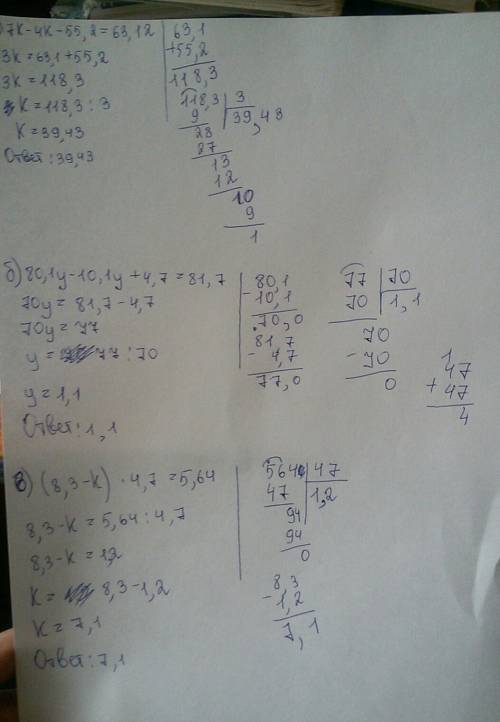 7к-4к-55,2=63,12
3к=63,1+55,2
3к=118,3
к=118,3:3
к=39,43
Ответ:39,43
63,1
+55,2
118,3
118,3 3
9 39,43
28
27
13
12
10
9
1
б)80,1у-10,1у+4,7=81,7
70у=81,7-4,7
70у=77
у= 77:70
у=1,1
Ответ:1,1
80,1
-10,1
70,0
81,7
- 4,7
77,0
77 70
70 1,1
70
-70
0
1
47
+47
4
в)(8,3-к)·4,7=5,64
8,3-к=5,64:4,7
8,3-к=1,2
к= 8,3-1,2
к=7,1
Ответ:7,1
564 47
47 1,2
94
94
0
8,3
-1,2
7,1